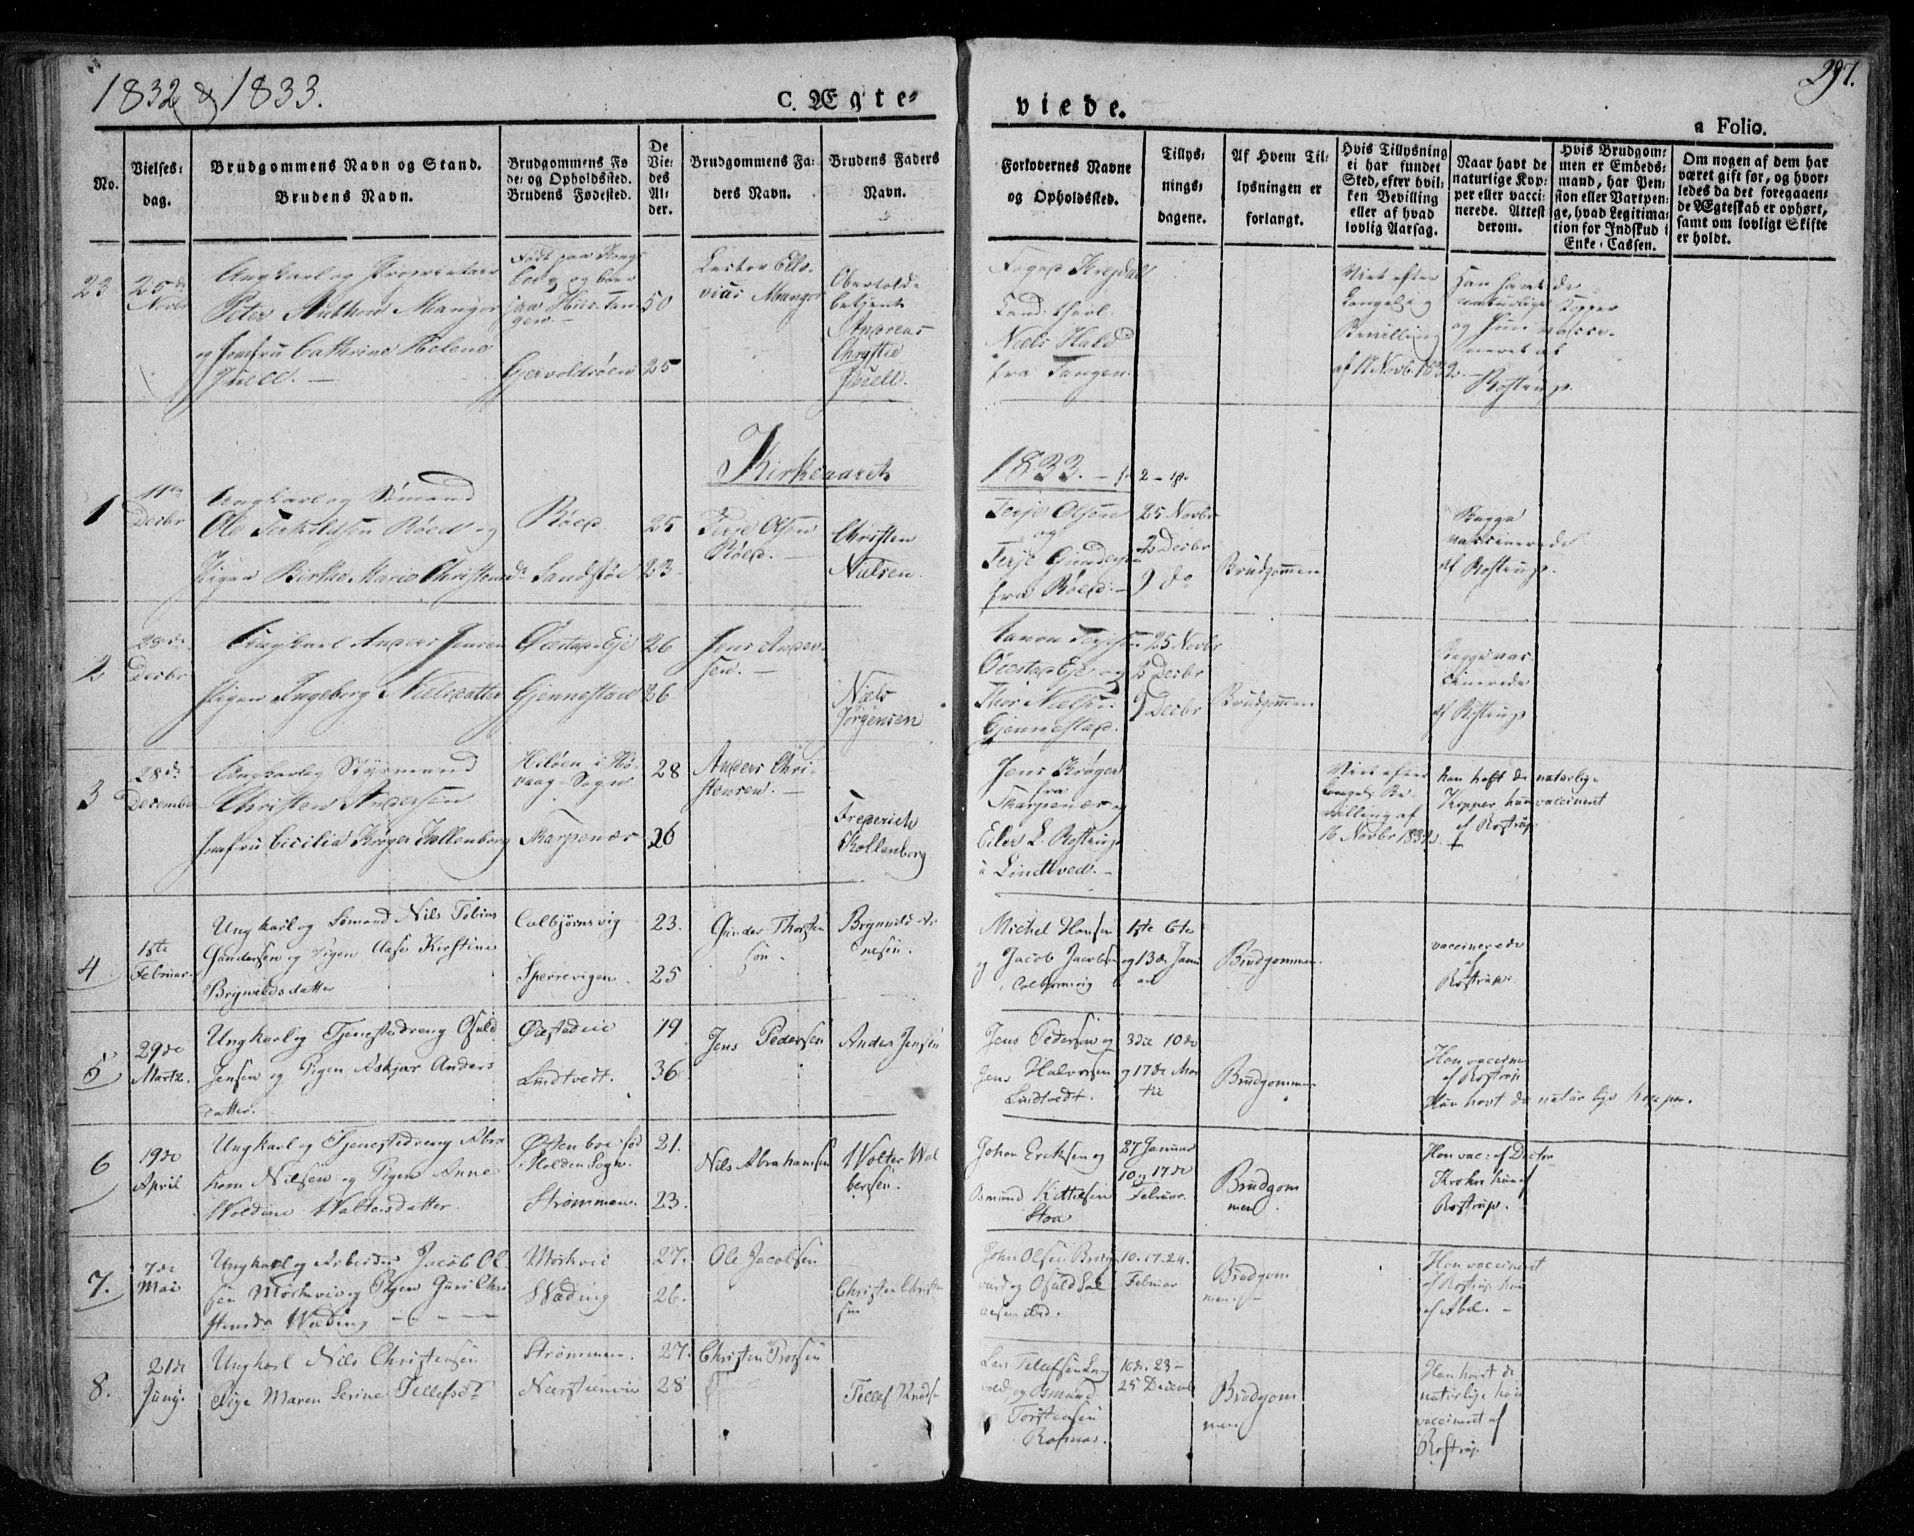 1832 & 1833.
C. Ægte-
viede.
297.
a Folio.
No.
Vielses-
dag.
Brudgommens Navn og Stand.
Brudens Navn.
Brudgommens Fø
de- og Opholdssted.
Brudens Fødested.
De
Vie-
des
Al-
der.
Brudgommens Fa-
ders Navn.
Brudens Faders
Navn.
Forlovernes Navne
og Opholdssted.
Tillys-
nings-
dagene.
Af Hvem Til-
lysningen er
forlangt.
Hvis Tillysning
ei har fundet
Sted, efter hvil-
ken Bevilling
eller af hvad
lovlig Aarsag.
Naar havt de
naturlige Kop-
per eller vacci-
nerede. Attest
derom.
Hvis Brudgom-
men er Embeds-
mand, har Pen-
sion eller Vartpen-
ge, hvad Legitima-
tion for Indskud i
Enke-Cassen.
Om nogen af dem har
været gift før, og hvor-
ledes da det foregaaen-
de Ægteskab er ophørt,
samt om lovligt Skifte
er holdt.
23
25de
Novbr
Ungkarl og
Peter Anthon Mangor
og Jomfru Cathrine Helene
Juell.
Født paa Kongs
berg og boer
50
Gervoldsøen
25
Mangor
Andreas
Christie
Juell.
Niels Hald
fra Tangen.
Viet efter
Bevilling
af 17 Novbr 1832.
og Hun vacci-
neret af
Rostrup.
Kirkeaaret
1833.
1
11te
Desbr
Ungkarl og Sømand
Ole Røed og
Pigen Birthe Marie Christensd.
Røed.
Sandstøe
25
23
Terje Olsen
Røed.
Christen
Nielsen.
Terje Olsen
og
Terje
fra Røed.
25 Novbr
2 Desbr
9 do
Brudgommen
Begge
vaccinerede
af Rostrup.
2
28de
Desbr
Ungkarl Anders Jensen
Pigen Ingeborg Nielsdatter
Øiestad Eje
Gjennestad
26
26
Jens Ander-
sen.
Niels
Jørgensen
Øiestad Eje og
Thor Nielsen
Gjennestad.
25 Novbr
2 Desbr
9 Desbr
Brudgommen
Begge vac-
cinerede
af Rostrup
3
28de
December
Ungkarl og Styrmand
Christen Andersen
Jomfru Cicilia Krøger Kallenborg
Hiløen i Hø-
vaag Sogn
Skarpenæs
28
26
Anders Chri-
stensen.
Frederich
Kallenborg
Jens Krøger
fra
Skarpenæs og
Eiler L. Rostrup
à Lindtved.
Viet efter
Kongel. Be-
villing af
16 Novbr 1832.
han haft de naturlige
Kopper hun vaccineret
af Rostrup
4
1ste
Februar.
Ungkarl og Sømand Nils Tobias
Gundersen og Pigen Aase Kirstine
Brynildsdatter
Colbjørnsvig
Sperrevigen.
23.
25
Gunder Thorsten
sön.
Brynild Ar
nesen.
Michel Hansen
og Jacob Jacobsen
Colbjørnsvig
1ste 6te
og 13de Janu
ar
Brudgommen.
vaccinerede
af
Rostrup.
5
29de
Martz.
Ungkarl og Tjenestedreng Osuld
Jensen og Pigen Askjær Anders
datter.
Øiestad eie
Lindtvedt.
19
36
Jens Pedersen
Anders Jensen
Jens Pedersen og
Jens Halvorsen
Lindtvedt.
3die 10de
og 17de Mar
tii
Brudgommen
Han vaccineret
af Rostrup
Hun havt de naturlige Kopper.
6
19de
April
Ungkarl og Tjenestedreng Abra
ham Nilsen og Pigen Anne
Woldine Woltersdatter.
Østenboe fød
i Holden Sogn.
Strømmen.
21.
23.
Nils Abrahamsen
Wolter Wol
bersen.
Johan Ericksen og
Osmund Kittelsen
Stoa
27 Januar
10 og 17de
Februar.
Brudgom
men.
Han vac: af Doctor
Krohn hun af
Rostrup.
7.
7de
Mai
Ungkarl og Arbeider Jacob Ol-
sen Mørkevig og Pigen Guri Chri
stensd. Wæding
Mørkvie
Wæding
27.
26.
Ole Jacobsen
Christen Christen
sen
John Olsen
og Osuld
10. 17. 24.
Februar
Brudgom
men.
Han vaccineret
af Rostrup hun
af Abel.
8.
21de
Juny.
Ungkarl Nils Christensen
Pige Maren Serine Tellefsdr
Strømmen.
Neerstenvie
27.
28
Christen Torsen
Tellef Knudsen
Lars Tellefsen
og Osmund
Torstensen
Rosnæs.
16de. 23-
25 Decemb
Brudgom
men
Han havt de
naturlige hun
vaccineret af
Rostrup